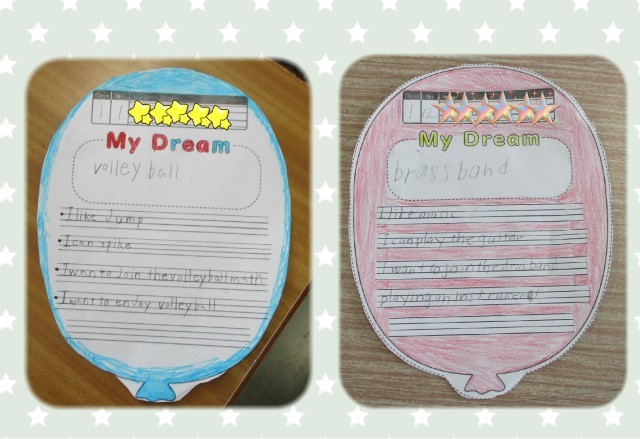 My Dream
volleyball
• I like Jump
• I can spike
• I want to Join the volleyball math
• I want to enjoy volleyball
My Dream
brass band
I like music
I can play the guitar
I want to join the brass band
playing an instrument